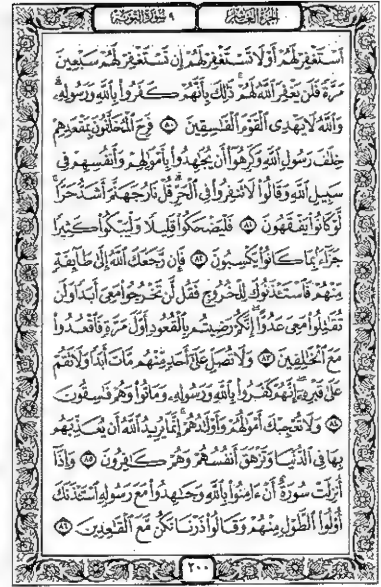 الجزء العاشر
٩ سورة التوبة
ٱسْتَغْفِرْ لَهُمْ أَوْ لَا تَسْتَغْفِرْ لَهُمْ إِن تَسْتَغْفِرْ لَهُمْ سَبْعِينَ
مَرَّةً فَلَن يَغْفِرَ ٱللَّهُ لَهُمْ ۚ ذَٰلِكَ بِأَنَّهُمْ كَفَرُوا۟ بِٱللَّهِ وَرَسُولِهِۦ ۗ
وَٱللَّهُ لَا يَهْدِى ٱلْقَوْمَ ٱلْفَـٰسِقِينَ ٨٠ فَرِحَ ٱلْمُخَلَّفُونَ بِمَقْعَدِهِمْ
خِلَـٰفَ رَسُولِ ٱللَّهِ وَكَرِهُوٓا۟ أَن يُجَـٰهِدُوا۟ بِأَمْوَٰلِهِمْ وَأَنفُسِهِمْ فِى
سَبِيلِ ٱللَّهِ وَقَالُوا۟ لَا تَنفِرُوا۟ فِى ٱلْحَرِّ ۗ قُلْ نَارُ جَهَنَّمَ أَشَدُّ حَرًّا ۚ
لَّوْ كَانُوا۟ يَفْقَهُونَ ٨١ فَلْيَضْحَكُوا۟ قَلِيلًا وَلْيَبْكُوا۟ كَثِيرًا
جَزَآءًۢ بِمَا كَانُوا۟ يَكْسِبُونَ ٨٢ فَإِن رَّجَعَكَ ٱللَّهُ إِلَىٰ طَآئِفَةٍ
مِّنْهُمْ فَٱسْتَـْٔذَنُوكَ لِلْخُرُوجِ فَقُل لَّن تَخْرُجُوا۟ مَعِىَ أَبَدًا وَلَن
تُقَـٰتِلُوا۟ مَعِىَ عَدُوًّا ۖ إِنَّكُمْ رَضِيتُم بِٱلْقُعُودِ أَوَّلَ مَرَّةٍ فَٱقْعُدُوا۟
مَعَ ٱلْخَـٰلِفِينَ ٨٣ وَلَا تُصَلِّ عَلَىٰٓ أَحَدٍ مِّنْهُم مَّاتَ أَبَدًا وَلَا تَقُمْ
عَلَىٰ قَبْرِهِۦٓ ۖ إِنَّهُمْ كَفَرُوا۟ بِٱللَّهِ وَرَسُولِهِۦ وَمَاتُوا۟ وَهُمْ فَـٰسِقُونَ
٨٤ وَلَا تُعْجِبْكَ أَمْوَٰلُهُمْ وَأَوْلَـٰدُهُمْ ۚ إِنَّمَا يُرِيدُ ٱللَّهُ أَن يُعَذِّبَهُم
بِهَا فِى ٱلدُّنْيَا وَتَزْهَقَ أَنفُسُهُمْ وَهُمْ كَـٰفِرُونَ ٨٥ وَإِذَآ
أُنزِلَتْ سُورَةٌ أَنْ ءَامِنُوا۟ بِٱللَّهِ وَجَـٰهِدُوا۟ مَعَ رَسُولِهِ ٱسْتَـْٔذَنَكَ
أُو۟لُوا۟ ٱلطَّوْلِ مِنْهُمْ وَقَالُوا۟ ذَرْنَا نَكُن مَّعَ ٱلْقَـٰعِدِينَ ٨٦
٢٠٠